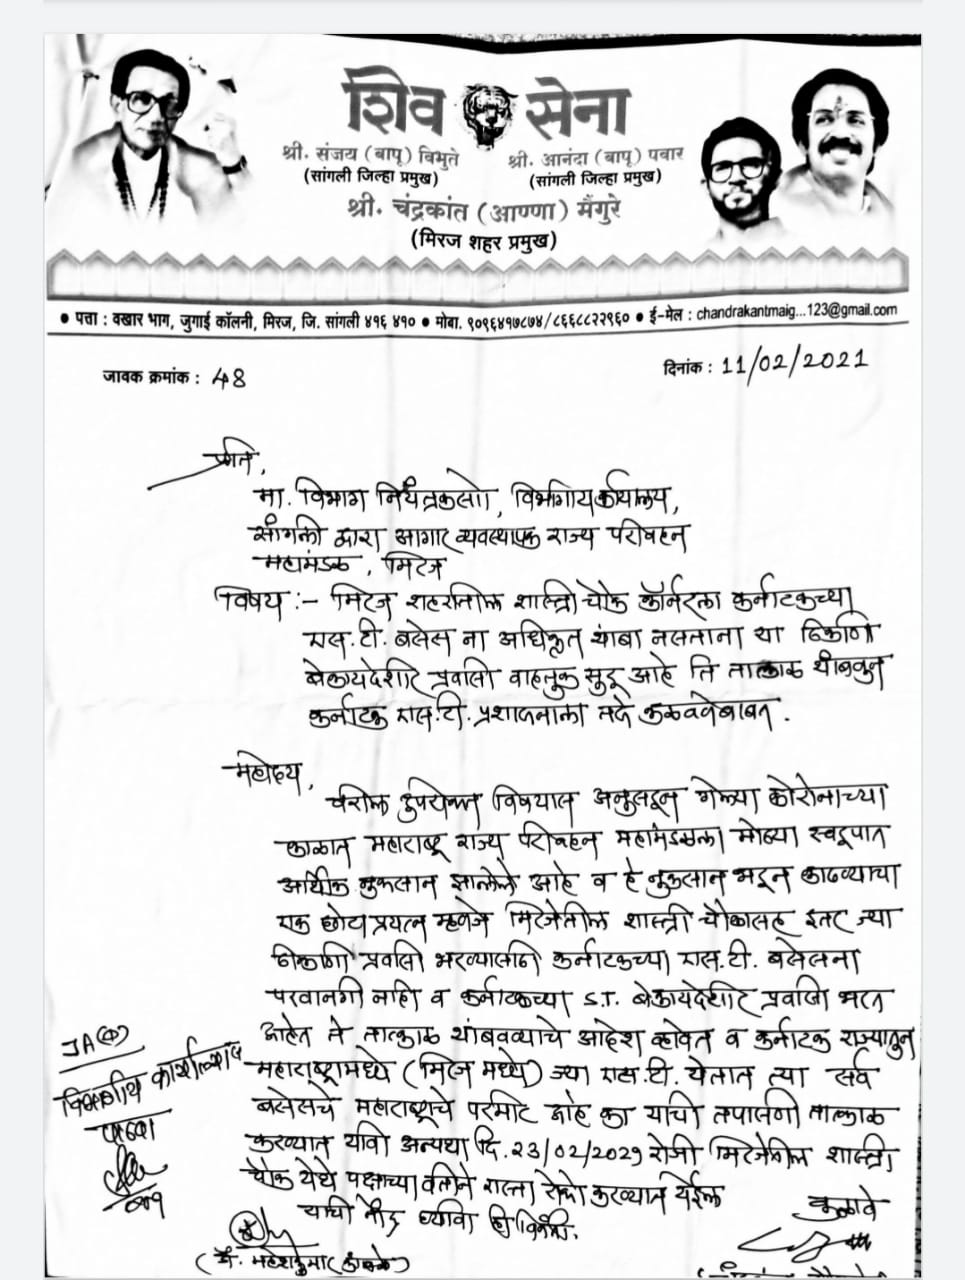 शिव सेना
श्री. संजय (बापू) विभुते
(सांगली जिल्हा प्रमुख)
श्री. आनंदा (बापू) पवार
(सांगली जिल्हा प्रमुख)
श्री. चंद्रकांत (आण्णा) मैंगुरे
(मिरज शहर प्रमुख)
• पत्ता : वखार भाग, जुगाई कॉलनी, मिरज, जि. सांगली ४१६ ४१० • मोबा. ९०९६४१७८७४/८६६८८२२९६० • ई-मेल : chandrakantmaig...123@gmail.com
जावक क्रमांक : 48
दिनांक : 11/02/2021
प्रति,
मा. विभाग नियंत्रकसो, विभागीय कार्यालय,
सांगली द्वारा आगार व्यवस्थापक राज्य परीवहन
महामंडळ, मिरज
विषय :- मिरज शहरातील शास्त्री चौक कॉर्नरला कर्नाटकच्या
एस.टी. बसेस ना अधिकृत थांबा नसताना या ठिकाणी
बेकायदेशीर प्रवासी वाहतुक सुरू आहे ति तात्काळ थांबवुन
कर्नाटक एस.टी. प्रशासनाला तसे कळवणेबाबत.
महोदय,
वरील उपरोक्त विषयास अनुसरून गेल्या कोरोनाच्या
काळात महाराष्ट्र राज्य परीवहन महामंडळाला मोठ्या स्वरूपात
आर्थिक नुकसान झालेले आहे व हे नुकसान भरून काढण्याचा
एक छोटा प्रयत्न म्हणजे मिरजेतील शास्त्री चौकासह इतर ज्या
ठीकाणी प्रवासी भरण्यासाठी कर्नाटकच्या एस.टी. बसेसना
परवानगी नाही व कर्नाटकच्या S.T. बेकायदेशीर प्रवासी भरत
आहेत ते तात्काळ थांबवण्याचे आदेश व्हावेत व कर्नाटक राज्यातुन
महाराष्ट्रामध्ये (मिरज मध्ये) ज्या एस.टी. येतात त्या सर्व
बसेसचे महाराष्ट्राचे परमीट आहे का याची तपासणी तात्काळ
करण्यात यावी अन्यथा दि. २३/०२/२०२१ रोजी मिरजेतील शास्त्री
चौक येथे पक्षाच्या वतीने रास्ता रोको करण्यात येईल
याची नोंद घ्यावी ही विनंती.
कळावे